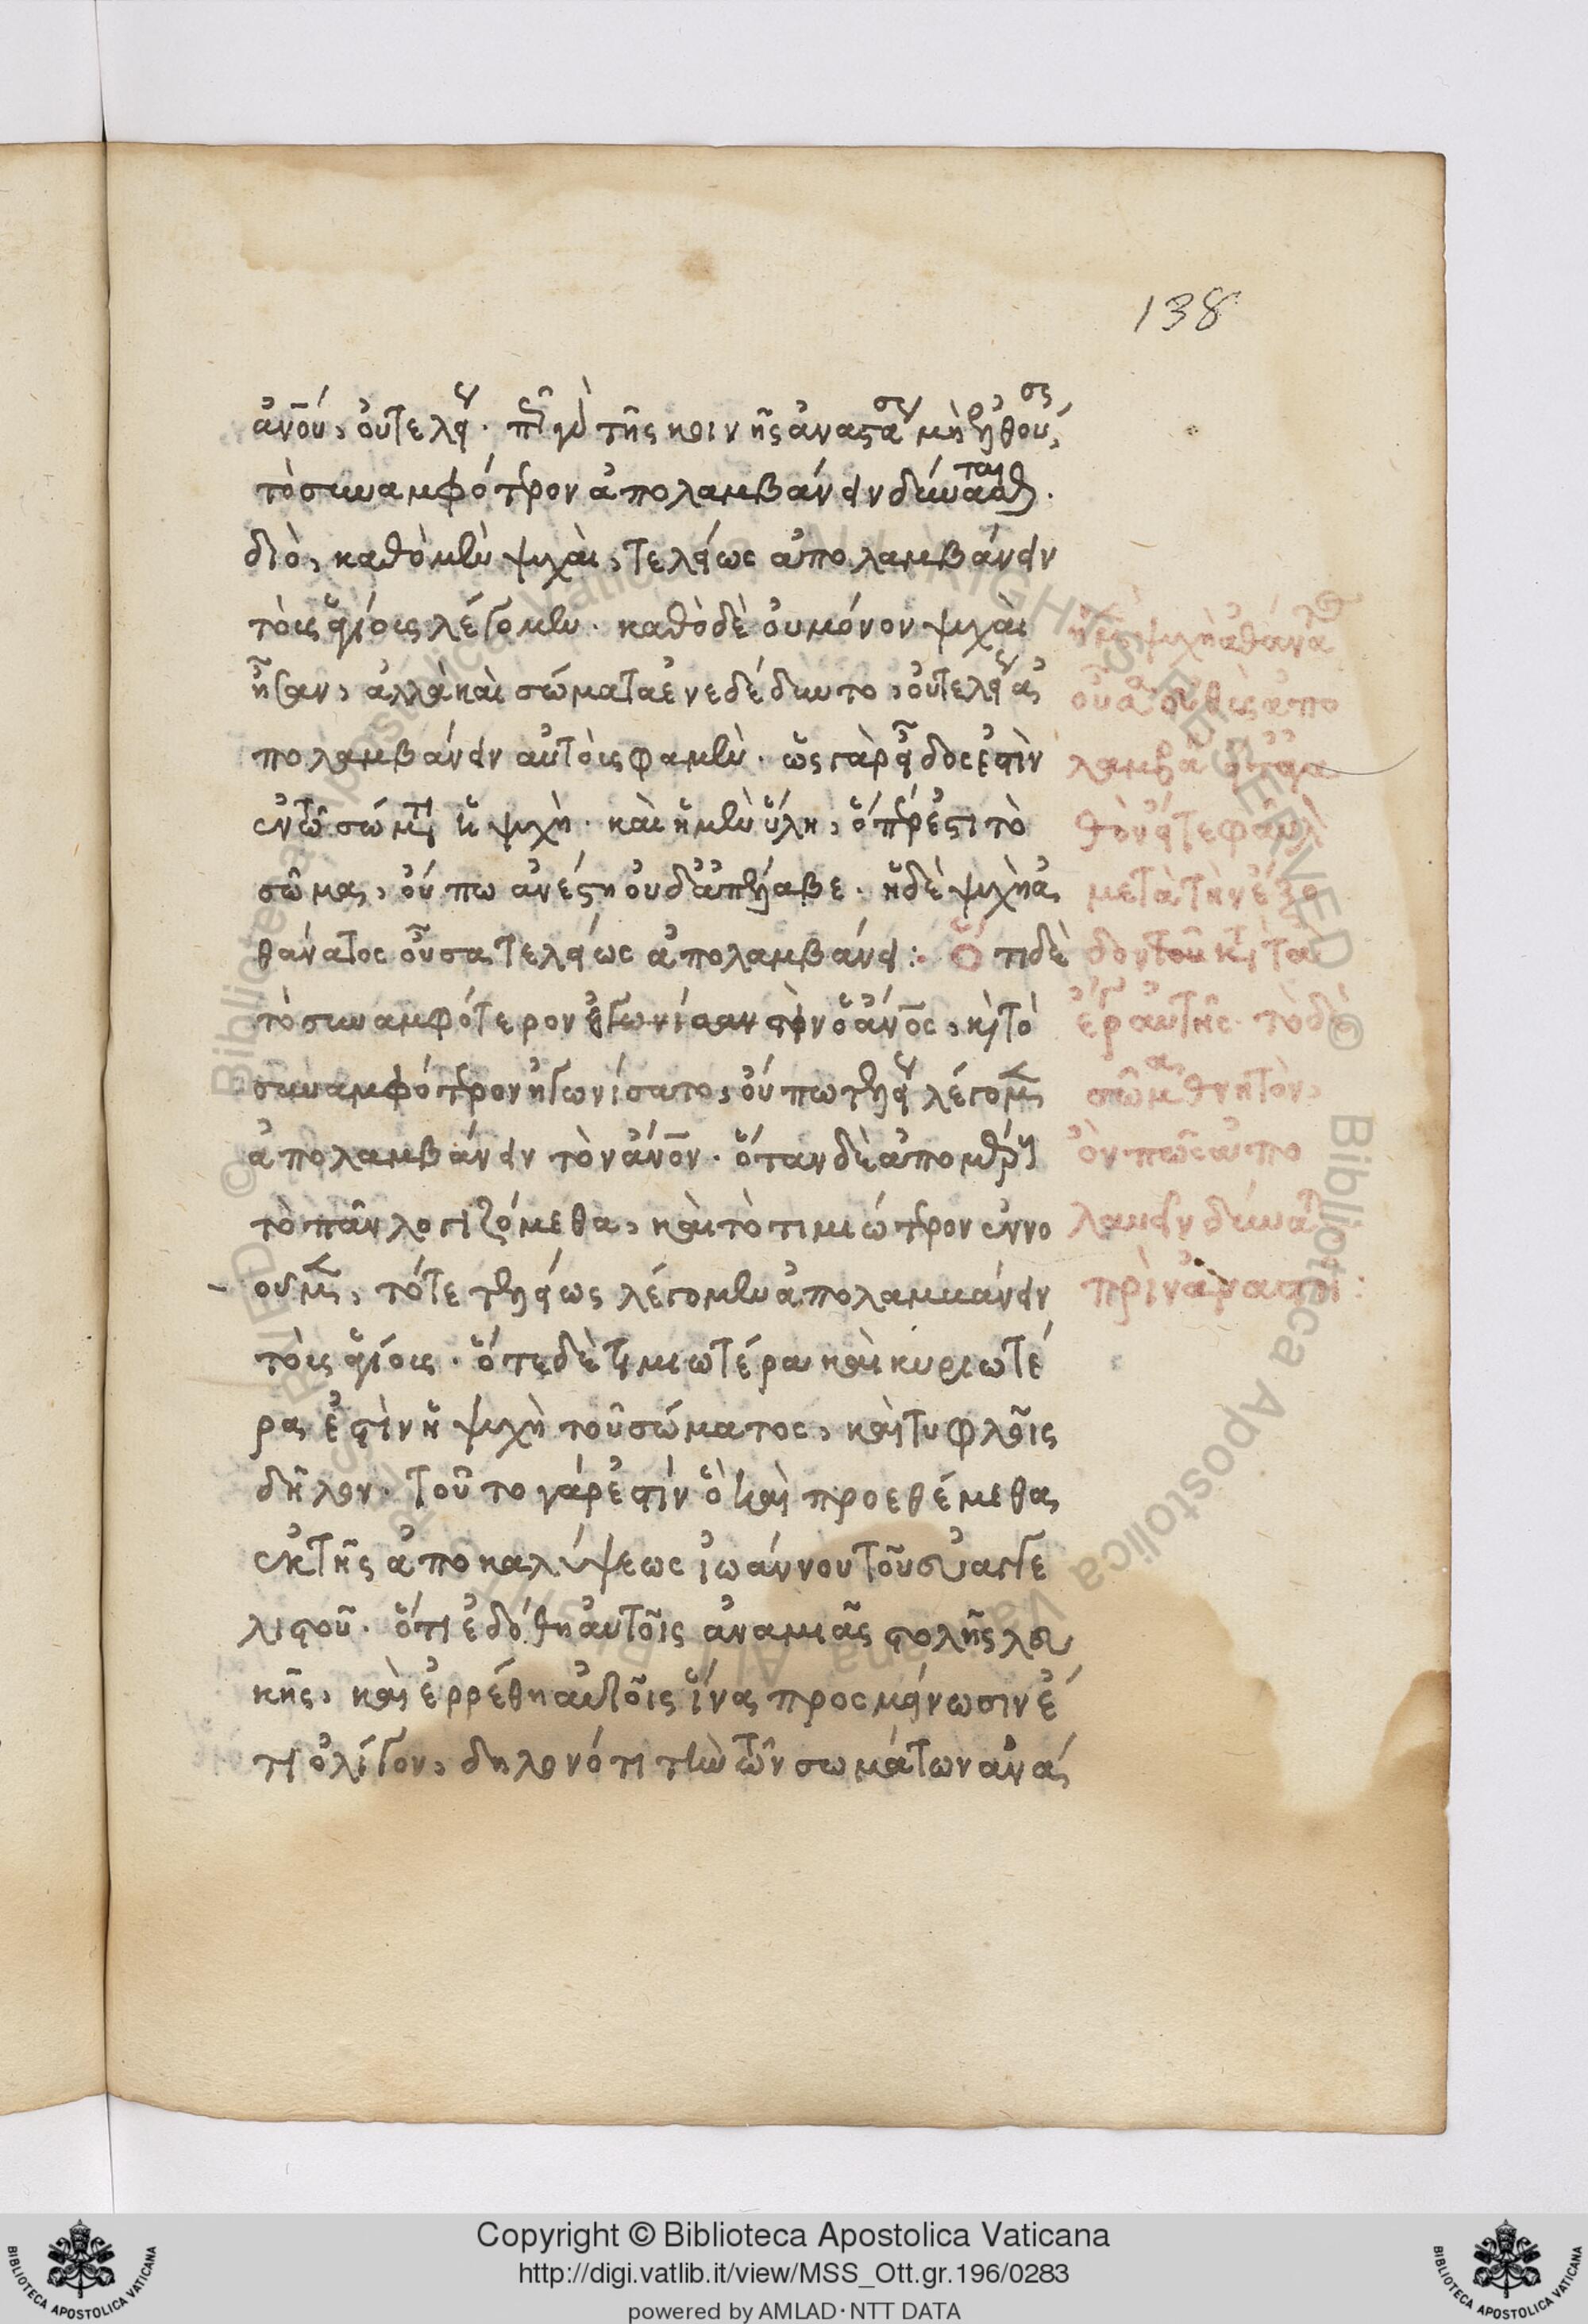 138
ἀνου, οὐ τελεί. πλὴν τῆς κοινῆς ἀναστάσεως μὴ
τὸ συναμφότερον ἀπολαμβάνειν δύναται.
διὸ, καθὸ μὲν ψυχαὶ, τελείως ἀπολαμβάνειν
τοὺς ἁγίους λέγομεν. καθὸ δὲ οὐ μόνον ψυχαὶ
ἦσαν, ἀλλὰ καὶ σώματα ἐνεδέδυντο, οὐ τελείως ἀ
πολαμβάνειν αὐτοὺς φαμὲν. ὡς γὰρ εἶδος ἐστὶν
ἐν τῶ σώματι ἡ ψυχὴ. καὶ ἡ μὲν ὕλη, ὅπερ ἐστὶ τὸ
σῶμα, οὔπω ἀνέστη οὐδ' ἀπέλαβε. ἡ δὲ ψυχὴ ἀ
θάνατος οὖσα τελείως ἀπολαμβάνει: Ὅτι δὲ
τὸ συναμφότερον ὁ ἀνος, κὶ τὸ
συναμφότερον ἠγωνίσατο, οὔπω τελείως λέγομεν
ἀπολαμβάνειν τὸν ἀνον. ὅταν δὲ ἀπὸ μέρους
τὸ πᾶν λογιζόμεθα, καὶ τὸ τιμιώτερον ἐννο
οῦμεν, τότε τελείως λέγομεν ἀπολαμβάνειν
τοὺς ἁγίους. ὅτι δὲ τιμιωτέρα καὶ κυριωτέ
ρα ἐστὶν ἡ ψυχὴ τοῦ σώματος, καὶ τυφλοῖς
δῆλον. τοῦτο γάρ ἐστίν ὃ καὶ προεθέμεθα
ἐκ τῆς ἀποκαλύψεως ἰωάννου τοῦ εὐαγγε
λιστοῦ. ὅτι ἐδόθη αὐτοῖς ἀνα μιᾶς στολῆς λευ
κῆς, καὶ ἐρρέθη αὐτοῖς ἵνα προσμείνωσιν ἔ
τι ὀλίγον, δηλονότι τὴν τῶν σωμάτων ἀνά
ψυχὴ ἀθάνατος
οὖσα εὐθὺς ἀπο
λαμβάνει
μετὰ τὴν ἔξο
δον τοῦ
αὐτῆς. τὸ δὲ
σῶμα θνητὸν
ὂν πῶς ἀπο
λαβεῖν δύναται
πρὶν ἀναστῆ:
Copyright © Biblioteca Apostolica Vaticana
http://digi.vatlib.it/view/MSS_Ott.gr.196/0283
powered by AMLAD·NTT DATA
BIBLIOTECA APOSTOLICA VATICANA
BIBLIOTECA APOSTOLICA VATICANA